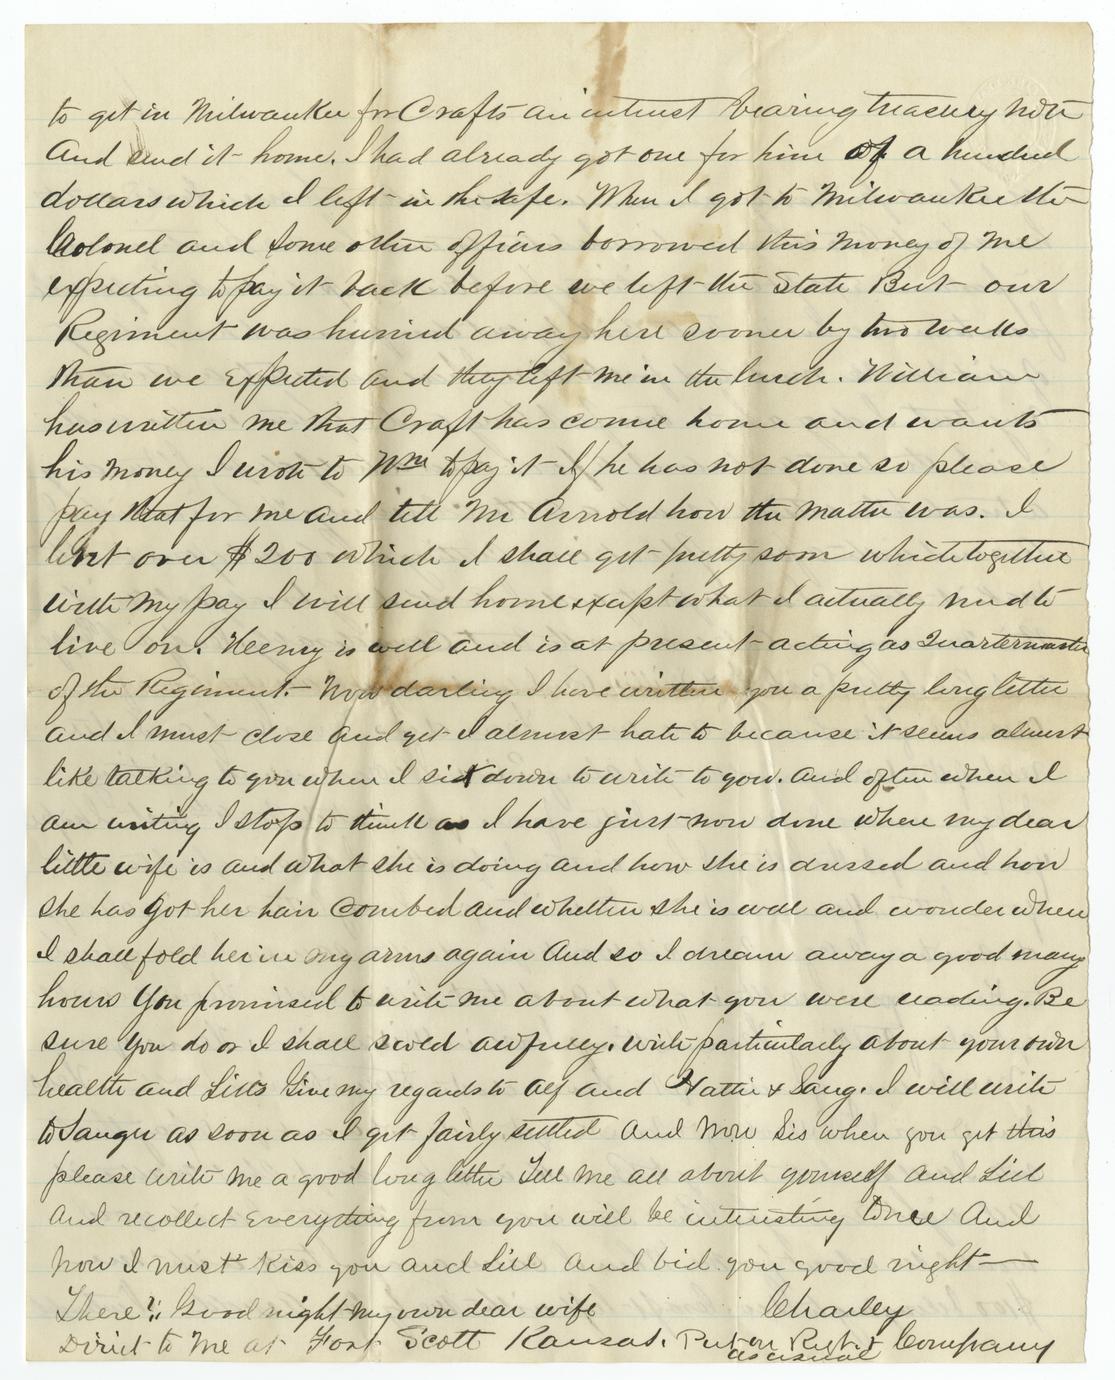 to get in Milwaukee for Crafts an intrest bearing treasury note
And send it home. I had already got one for him of a hundred
dollars which I left in the safe. When I got to Milwaukee the
Colonel and Some other officers borrowed this Money of Me
expecting to pay it back before we left the State But our
Regiment was hurried away here sooner by two weeks
than we Expected and they left me in the lurch. William
has written me that Craft has come home and wants
his Money I wrote to Wm to pay it If he has not done so please
pay that for me and tell Mr Arnold how the Matter was. I
lent over $200 which I shall get pretty soon which together
with My pay I will send home except what I actually need to
live on. Henry is well and is at present acting as Quartermaster
of the Regiment. Now darling I have written you a pretty long letter
and I must close And yet I almost hate to because it seems almost
like talking to you when I sit down to write to you. And often when I
am writing I stop to think as I have just now done where my dear
little wife is and what she is doing and how she is dressed and how
she has got her hair Combed and whether she is well and wonder when
I shall fold her in my arms again And so I dream away a good many
hours You promised to write me about what you were reading. Be
sure You do or I shall scold awfully. Write particularly about your own
health and Lills Give my regards to Alf and Hattie & Sang. I will write
to Sanger as soon as I get fairly settled And Now Sis when you get this
please write Me a good long letter Tell Me all about yourself And Lill
And recollect Everything from you will be intresting to me And
Now I must Kiss you and Lill And bid you good night —
There!! Good night My own dear wife Charley
Direct to Me at Fort Scott Kansas. Put on Regt & Company
as usual